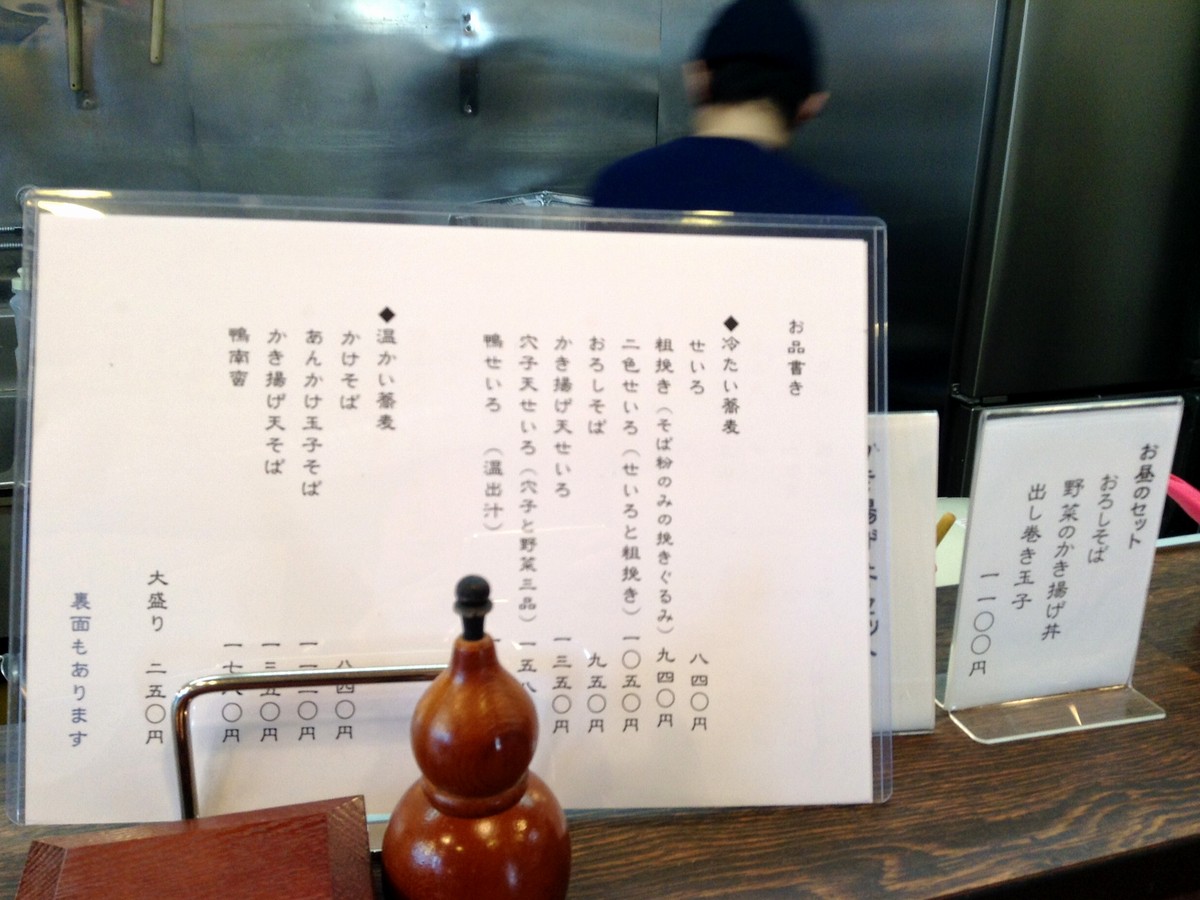 お品書き
◆冷たい蕎麦
せいろ 八四〇円
粗挽き（そば粉のみの挽きぐるみ） 九四〇円
二色せいろ（せいろと粗挽き） 一〇五〇円
おろしそば 九五〇円
かき揚げ天せいろ 一三五〇円
穴子天せいろ（穴子と野菜三品） 一五八
鴨せいろ （温出汁）
◆温かい蕎麦
かけそば 八四〇円
あんかけ玉子そば 一一二〇円
かき揚げ天そば 一三五〇円
鴨南蛮 一七八〇円
大盛り 二五〇円
裏面もあります
お昼のセット
おろしそば
野菜のかき揚げ丼
出し巻き玉子
一一〇〇円